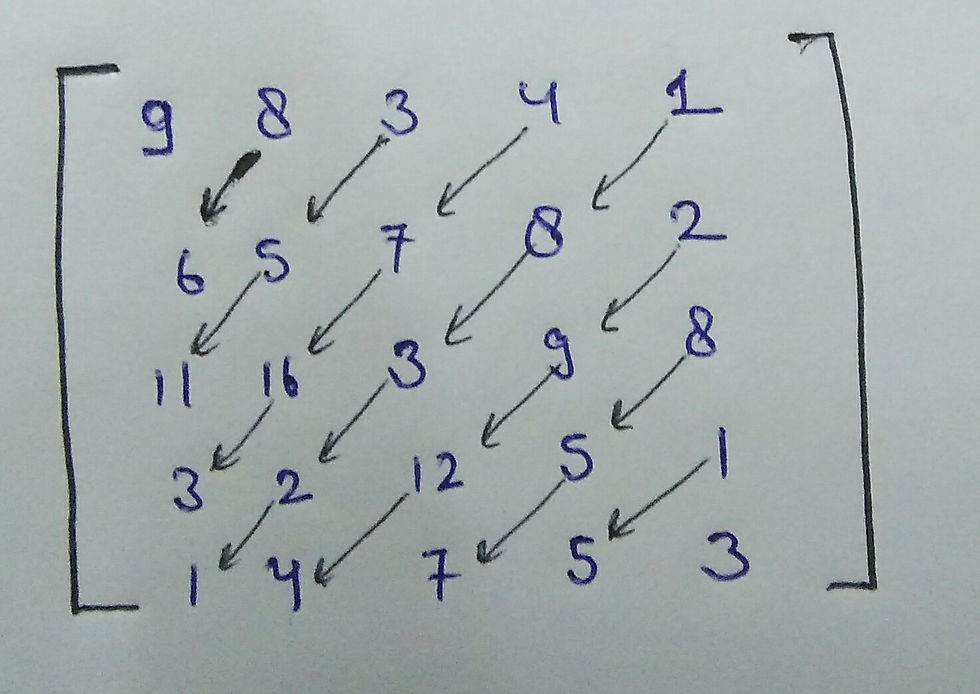 9 8 3 4 1
6 5 7 8 2
11 16 3 9 8
3 2 12 5 1
1 4 7 5 3